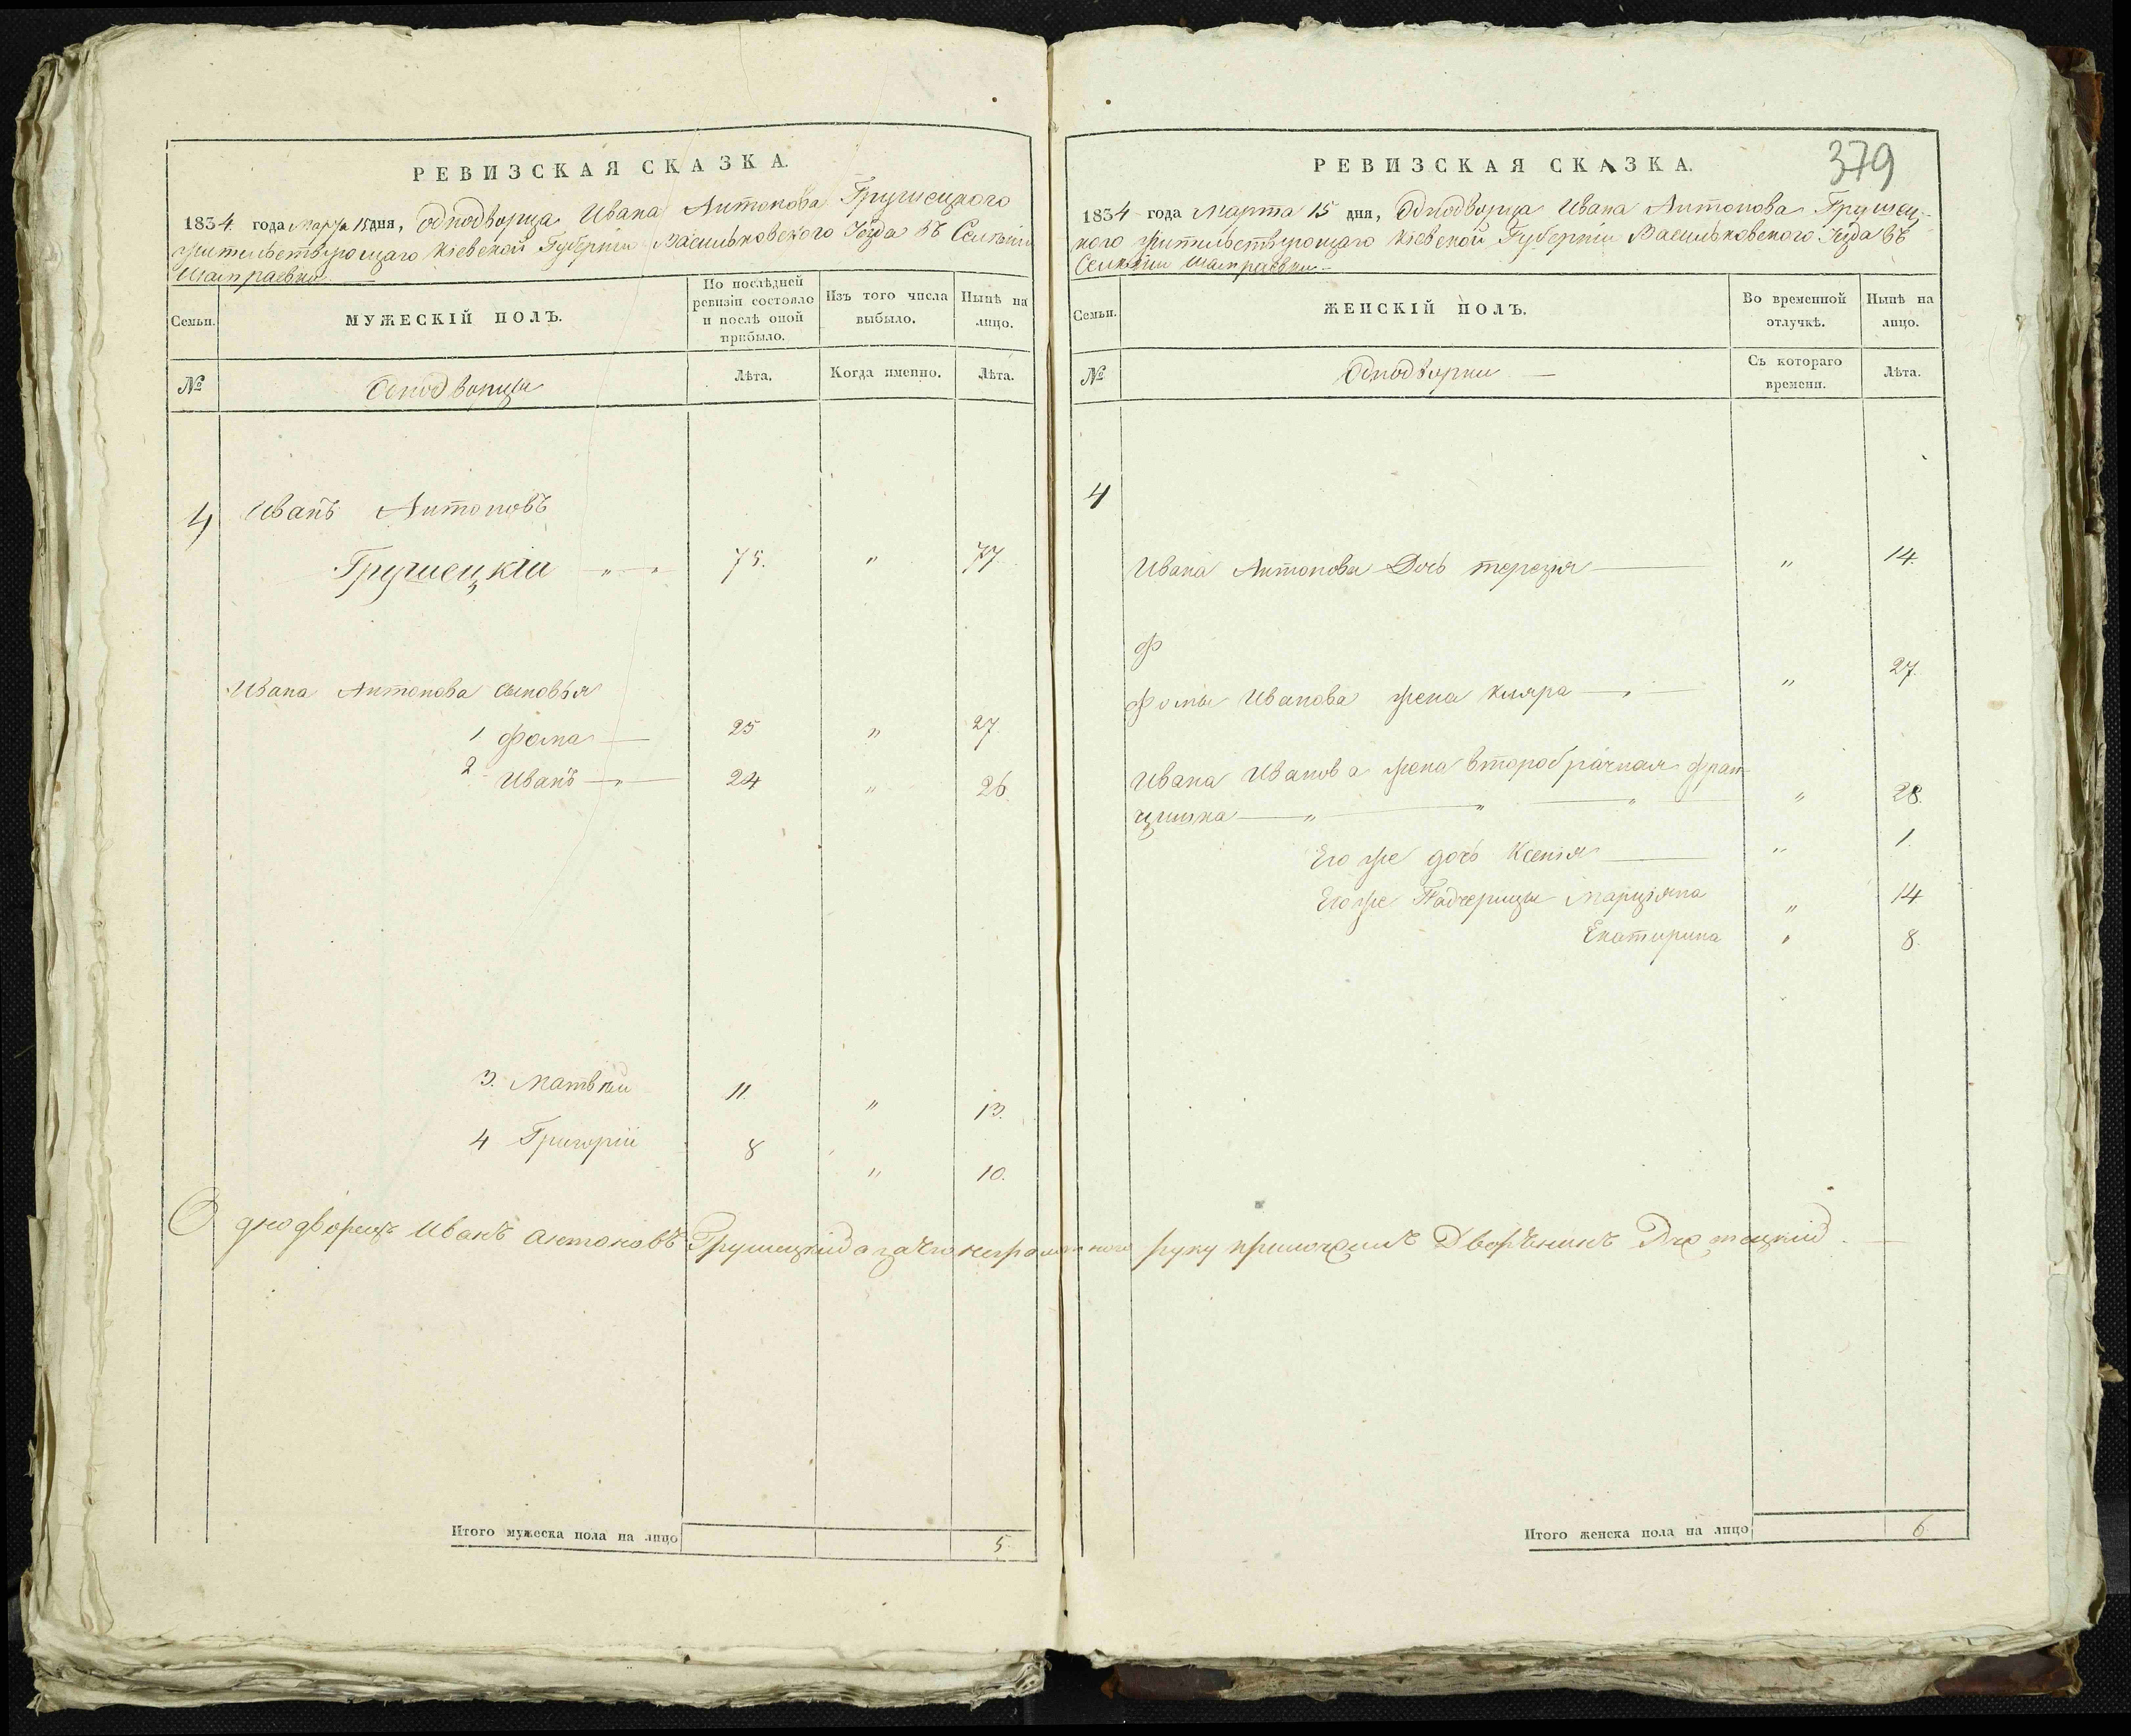 РЕВИЗСКАЯ СКАЗКА.
1834 года Марта 15 дня, Однодворца Ивана Антонова Грушецкого
жительствующаго Кіевской Губерніи Васильковскаго Уезда въ Селеніи
Шамраевки
Семьи.
МУЖЕСКІЙ ПОЛЪ.
По послѣдней ревизіи состояло и послѣ оной прибыло.
Изъ того числа выбыло.
Нынѣ на лицо.
№
Однодворцы
Лѣта.
Когда именно.
Лѣта.
4 Иванъ Антоновъ
Грушецкій „ — „ 75. „ 77.
Ивана Антонова сыновья
1. Фома — 25 „ 27.
2 Иванъ — „ — 24 „ 26.
3. Матвѣй 11. „ 13.
4 Григорій 8 „ 10.
Однодворецъ Иванъ Антоновъ Грушецкій а за его неграмотного руку приложилъ Дворянинъ
Итого мужеска пола на лицо 5.
379
РЕВИЗСКАЯ СКАЗКА.
1834 года Марта 15 дня, Однодворца Ивана Антонова Грушец-
кого жительствующаго Кіевской Губерніи Васильковского Уезда въ
Селеніи Шамраевки —
Семьи.
ЖЕНСКІЙ ПОЛЪ.
Во временной отлучкѣ.
Нынѣ на лицо.
№
Однодворки —
Съ котораго времени.
Лѣта.
4
Ивана Антонова Дочь терезія — „ 14.
Ф
Фомы Иванова жена Кляра — „ — „ 27.
Ивана Иванова жена второбрачная Фран-
цишка — „ — „ — „ — „ 28.
Его же дочь Ксенія — „ 1.
Его же Падчерицы Марціяна „ 14
Екатирина „ 8.
Итого женска пола на лицо 6.